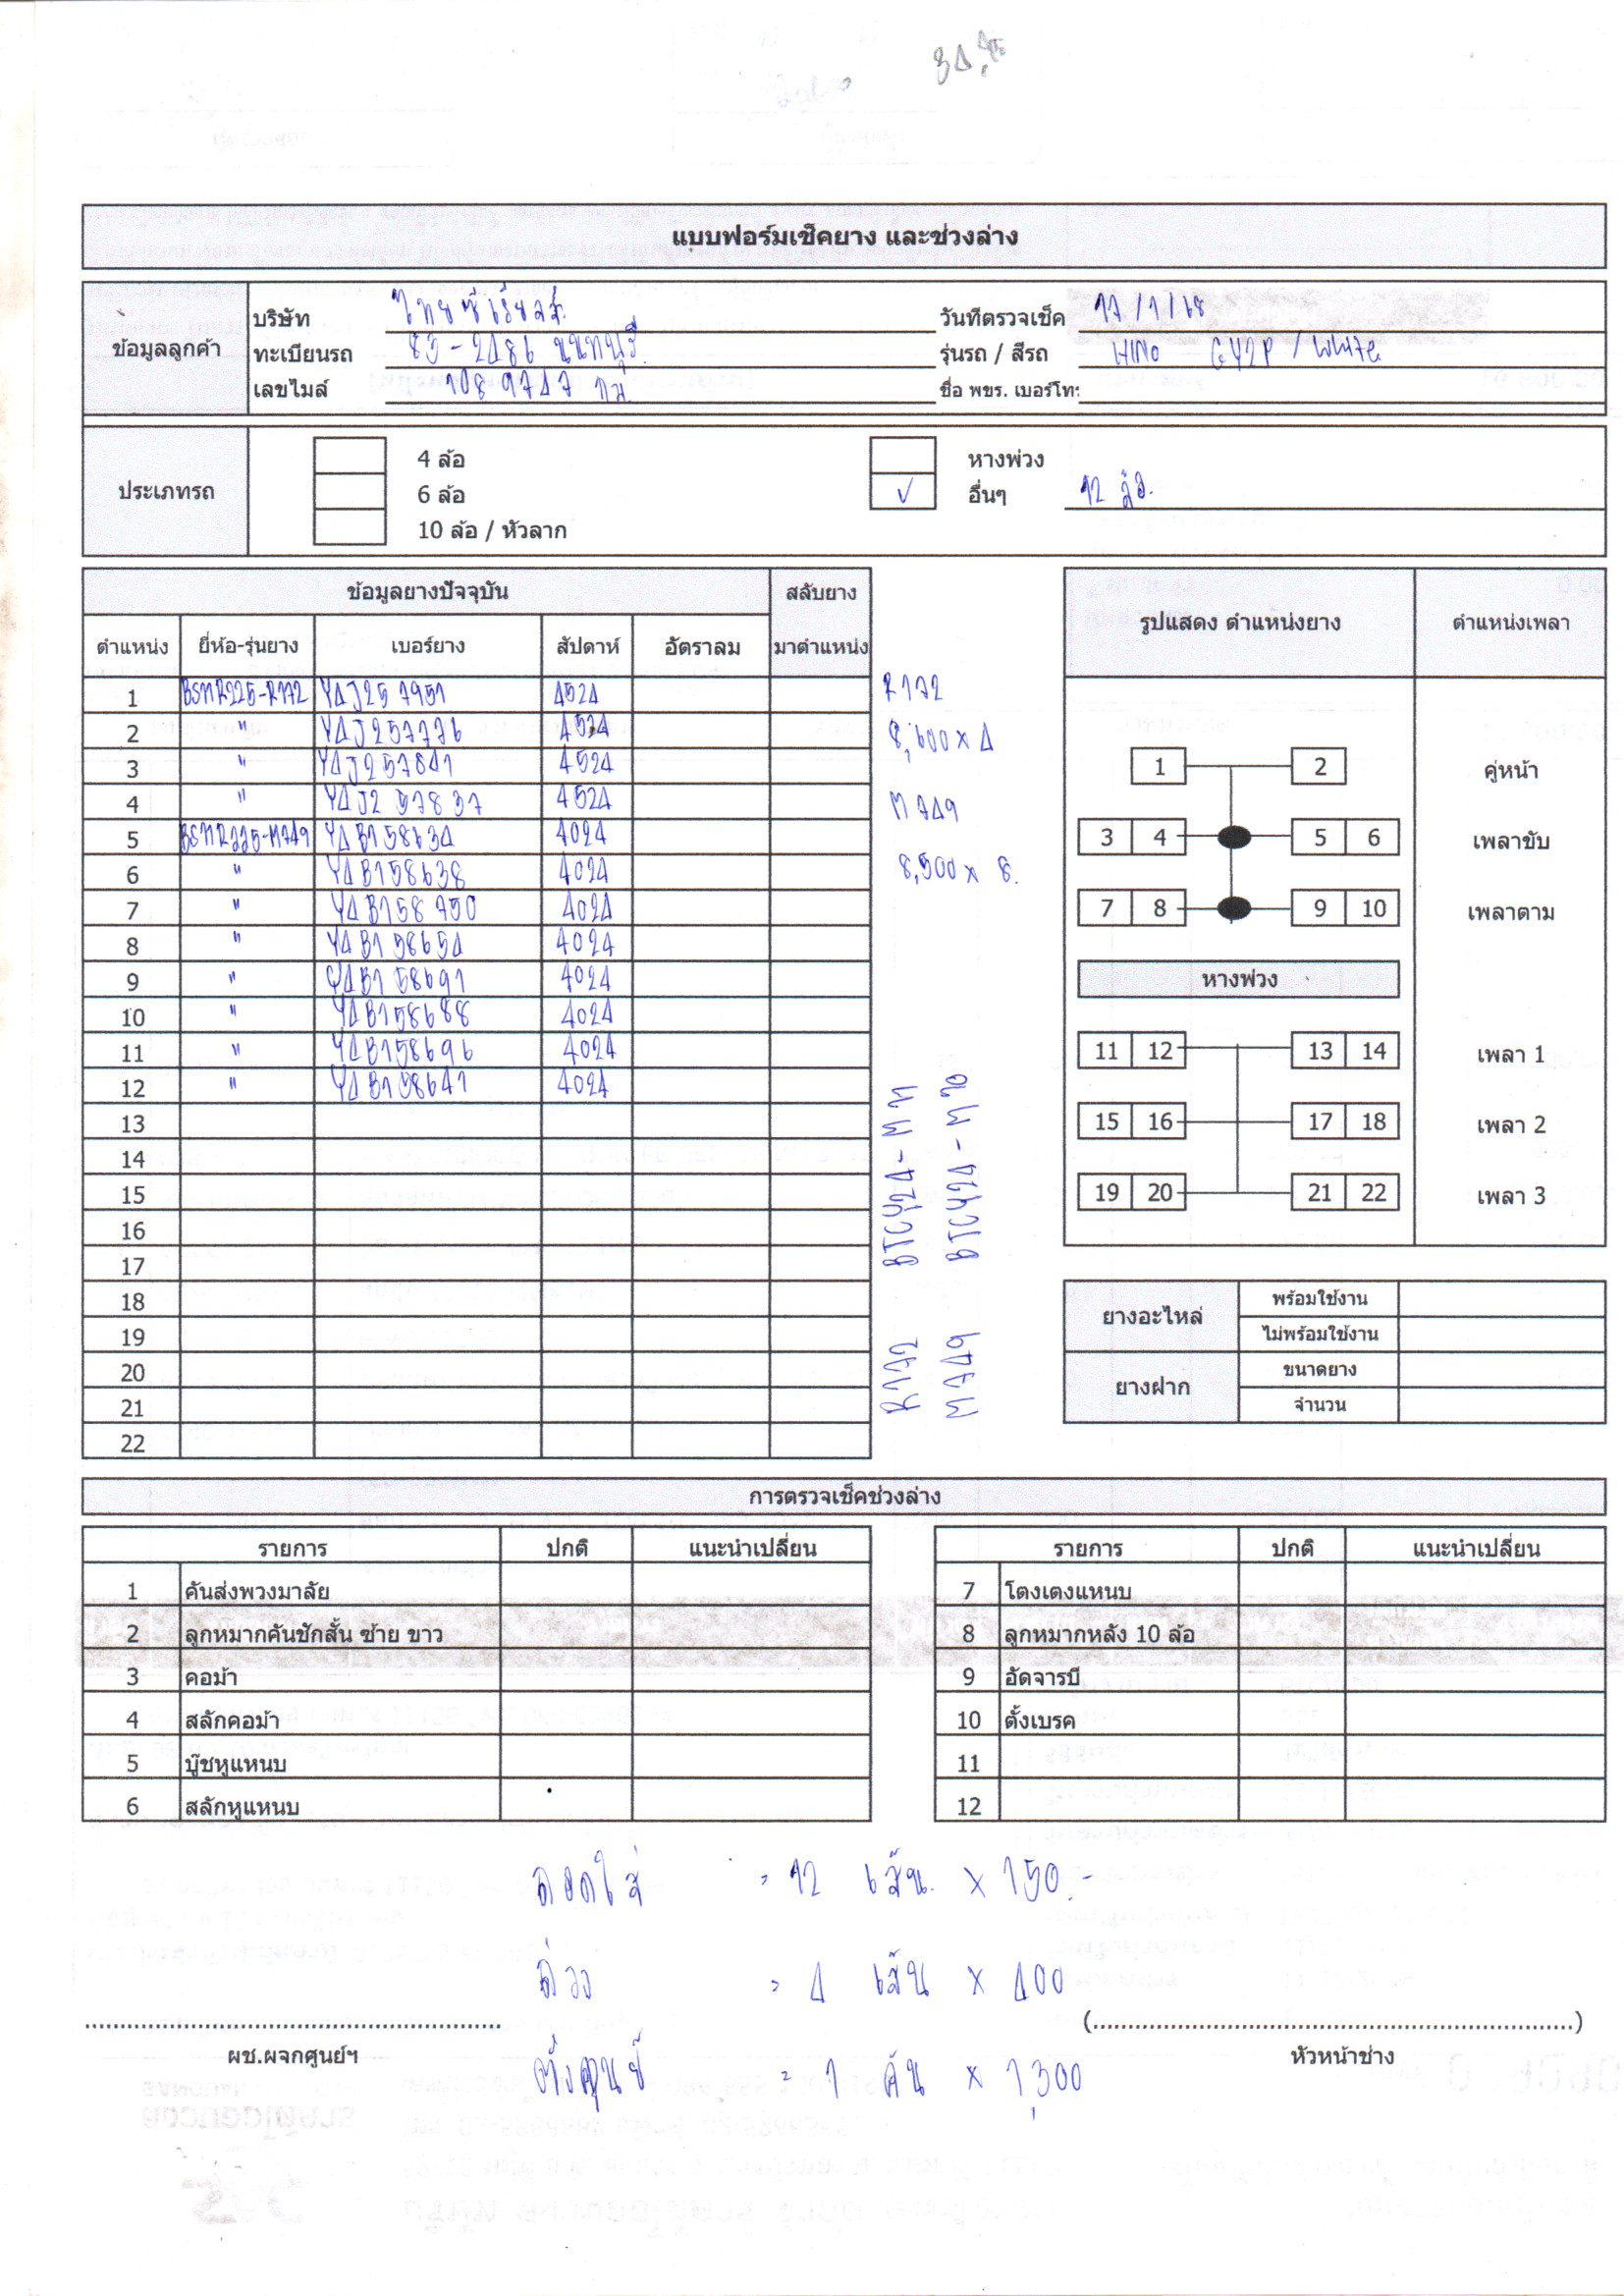 แบบฟอร์มเช็คยาง และช่วงล่าง
ข้อมูลลูกค้า
บริษัท ไทยซีเรียลส์
วันที่ตรวจเช็ค 17/1/68
ทะเบียนรถ 83-2486 นนทบุรี
รุ่นรถ / สีรถ HINO GY2P / White
เลขไมล์ 1089747 กม.
ชื่อ พขร. เบอร์โทร:
ประเภทรถ
4 ล้อ หางพ่วง
6 ล้อ √ อื่นๆ 12 ล้อ.
10 ล้อ / หัวลาก
ข้อมูลยางปัจจุบัน สลับยาง
ตำแหน่ง ยี่ห้อ-รุ่นยาง เบอร์ยาง สัปดาห์ อัตราลม มาตำแหน่ง
1 BS11R225-R172 Y4J257951 4524
2 " Y4J257776 4524
3 " Y4J257841 4524
4 " Y4J257837 4524
5 BS11R225-M749 Y4B158634 4024
6 " Y4B158638 4024
7 " Y4B158750 4024
8 " Y4B158654 4024
9 " Y4B158691 4024
10 " Y4B158688 4024
11 " Y4B158696 4024
12 " Y4B158641 4024
13
14
15
16
17
18
19
20
21
22
R172
8,600 x 4
M749
8,500 x 8.
R172
M749
รูปแสดง ตำแหน่งยาง ตำแหน่งเพลา
1 2 คู่หน้า
3 4 5 6 เพลาขับ
7 8 9 10 เพลาตาม
หางพ่วง
11 12 13 14 เพลา 1
15 16 17 18 เพลา 2
19 20 21 22 เพลา 3
ยางอะไหล่ พร้อมใช้งาน
ไม่พร้อมใช้งาน
ยางฝาก ขนาดยาง
จำนวน
การตรวจเช็คช่วงล่าง
รายการ ปกติ แนะนำเปลี่ยน
1 คันส่งพวงมาลัย
2 ลูกหมากคันชักสั้น ซ้าย ขาว
3 คอม้า
4 สลักคอม้า
5 บู๊ชหูแหนบ
6 สลักหูแหนบ
รายการ ปกติ แนะนำเปลี่ยน
7 โตงเตงแหนบ
8 ลูกหมากหลัง 10 ล้อ
9 อัดจารบี
10 ตั้งเบรค
11
12
ถอดใส่ = 12 เส้น. x 150.-
ถ่วง = 4 เส้น x 400
ตั้งศูนย์ = 1 คัน x 1,300
ผช.ผจกศูนย์ฯ
(........................................)
หัวหน้าช่าง